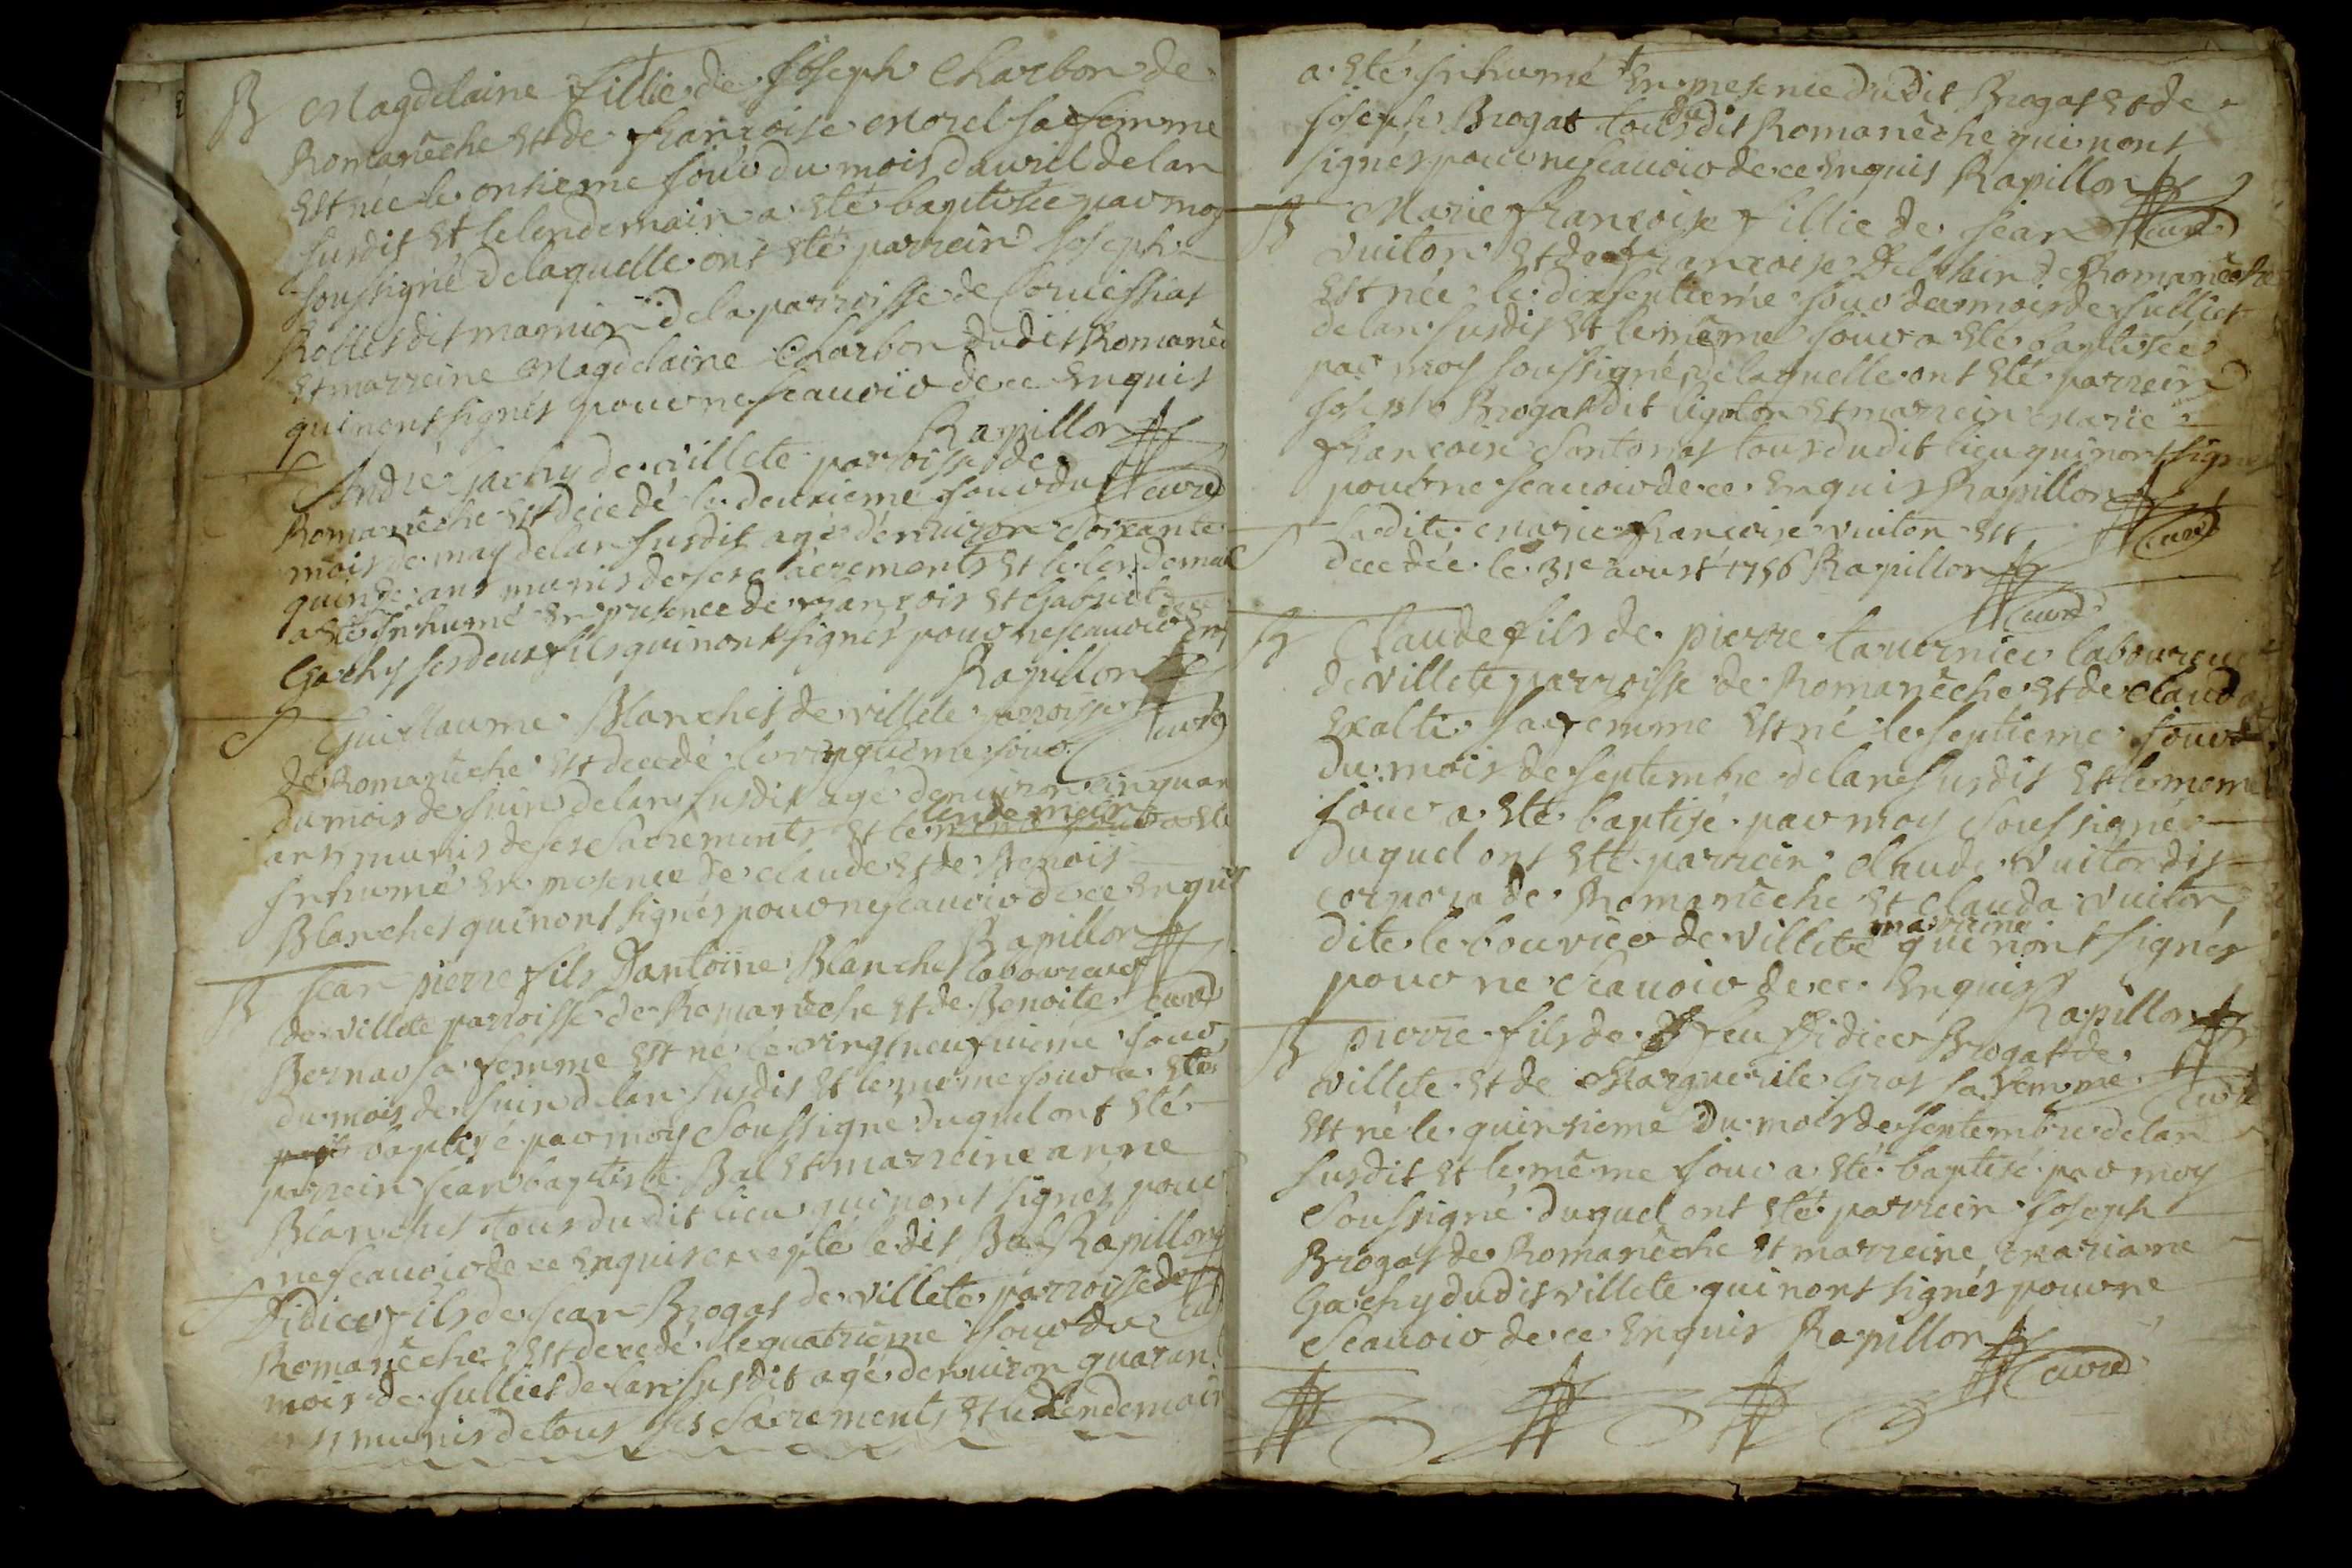 B Magdelaine fillie de Joseph Charbon de
Romanêche et de françoise Morel sa femme
est née le onsieme jour du mois davril de lan
susdit et le lendemain a eté baptisée par moy
soussigné de laquelle ont eté parrein Joseph
Rollet dit magnion de la parroisse de
et marreine Magdelaine Charbon dudit Romanêc
qui nont signés pour ne scauoir de ce enquis
Rapillon
curé
S André gachy de villete parroisse de
Romanêche est decedé le deuxieme jour du
mois de may de lan susdit agé denuiron soixante
quinze ans munis de ses sacrements et le lendemai
a eté inhumé en presence de françois et Gabriel
Gachy ses deux fils qui nont signés pour ne scauoir enq
Rapillon
curé
S Guillaume Blanchet de villete parroisse
de Romanêche est decedé le cinquieme jour
du mois de juin de lan susdit agé denuiron cinquan
lendemain
ans munis de ses sacrements et le a eté
inhumé en presence de claude et de Benoit
Blanchet qui nont signés pour ne scauoir de ce enquis
Rapillon
curé
B jean pierre fils dantoine Blanchet laboureur
de villete parroisse de Romanêche et de Benoite
Bernar sa femme est né le vingt neufuieme jour
du mois de juin de lan susdit et le meme jour a eté
baptisé par moy soussigné duquel ont eté
parrein jean baptiste Bal et marreine anne
Blanchet tous du dit lieu qui nont signés pour
ne scauoir de ce enquis excepté le dit Bal Rapillon
cur
S Didier fils de jean Brogat de villete parroisse de
Romanêche est decedé le quatrieme jour du
mois de julliet de lan susdit agé denuiron quaran
ans munis de tous ses sacrements et le lendemain
a eté inhumé en presence dudit Brogat et de
joseph Brogat tous dudit Romanêche qui nont
signés pour ne scauoir de ce enquis Rapillon
curé
B Marie françoise fillie de jean
vuiton et de françoise de Romanêche
est née le dixseptieme jour du mois de julliet
de lan susdit et le même jour a eté baptisée
par moy soussigné de laquelle ont eté parrein
joseph Brogat dit ligoton et marrein Marie
françoise tous dudit lieu qui nont signés
pour ne scauoir de ce enquis Rapillon
curé
S ladite Marie françoise vuiton est
decedée le 31e avust 1756 Rapillon
curé
B Claude fils de pierre tauernier laboureur
de villete parroisse de Romanêche et de clauda
sa femme est né le septieme jour
du mois de septembre de lan susdit et le meme
jour a eté baptisé par moy soussigné
duquel ont eté parrein claude vuiton dit
de Romanêche et clauda vuiton
marreine
dite le bouvier de villete qui nont signés
pour ne scauoir de ce enquis
Rapillon
curé
B pierre fils de feu Didier Brogat de
villete et de Marguerite Gros sa femme
est né le quinsieme du mois de septembre de lan
susdit et le même jour a eté baptisé par moy
soussigné duquel ont eté parrein joseph
Brogat de Romanêche et marreine mariane
Gachy dudit villete qui nont signés pour ne
scauoir de ce enquis Rapillon
curé